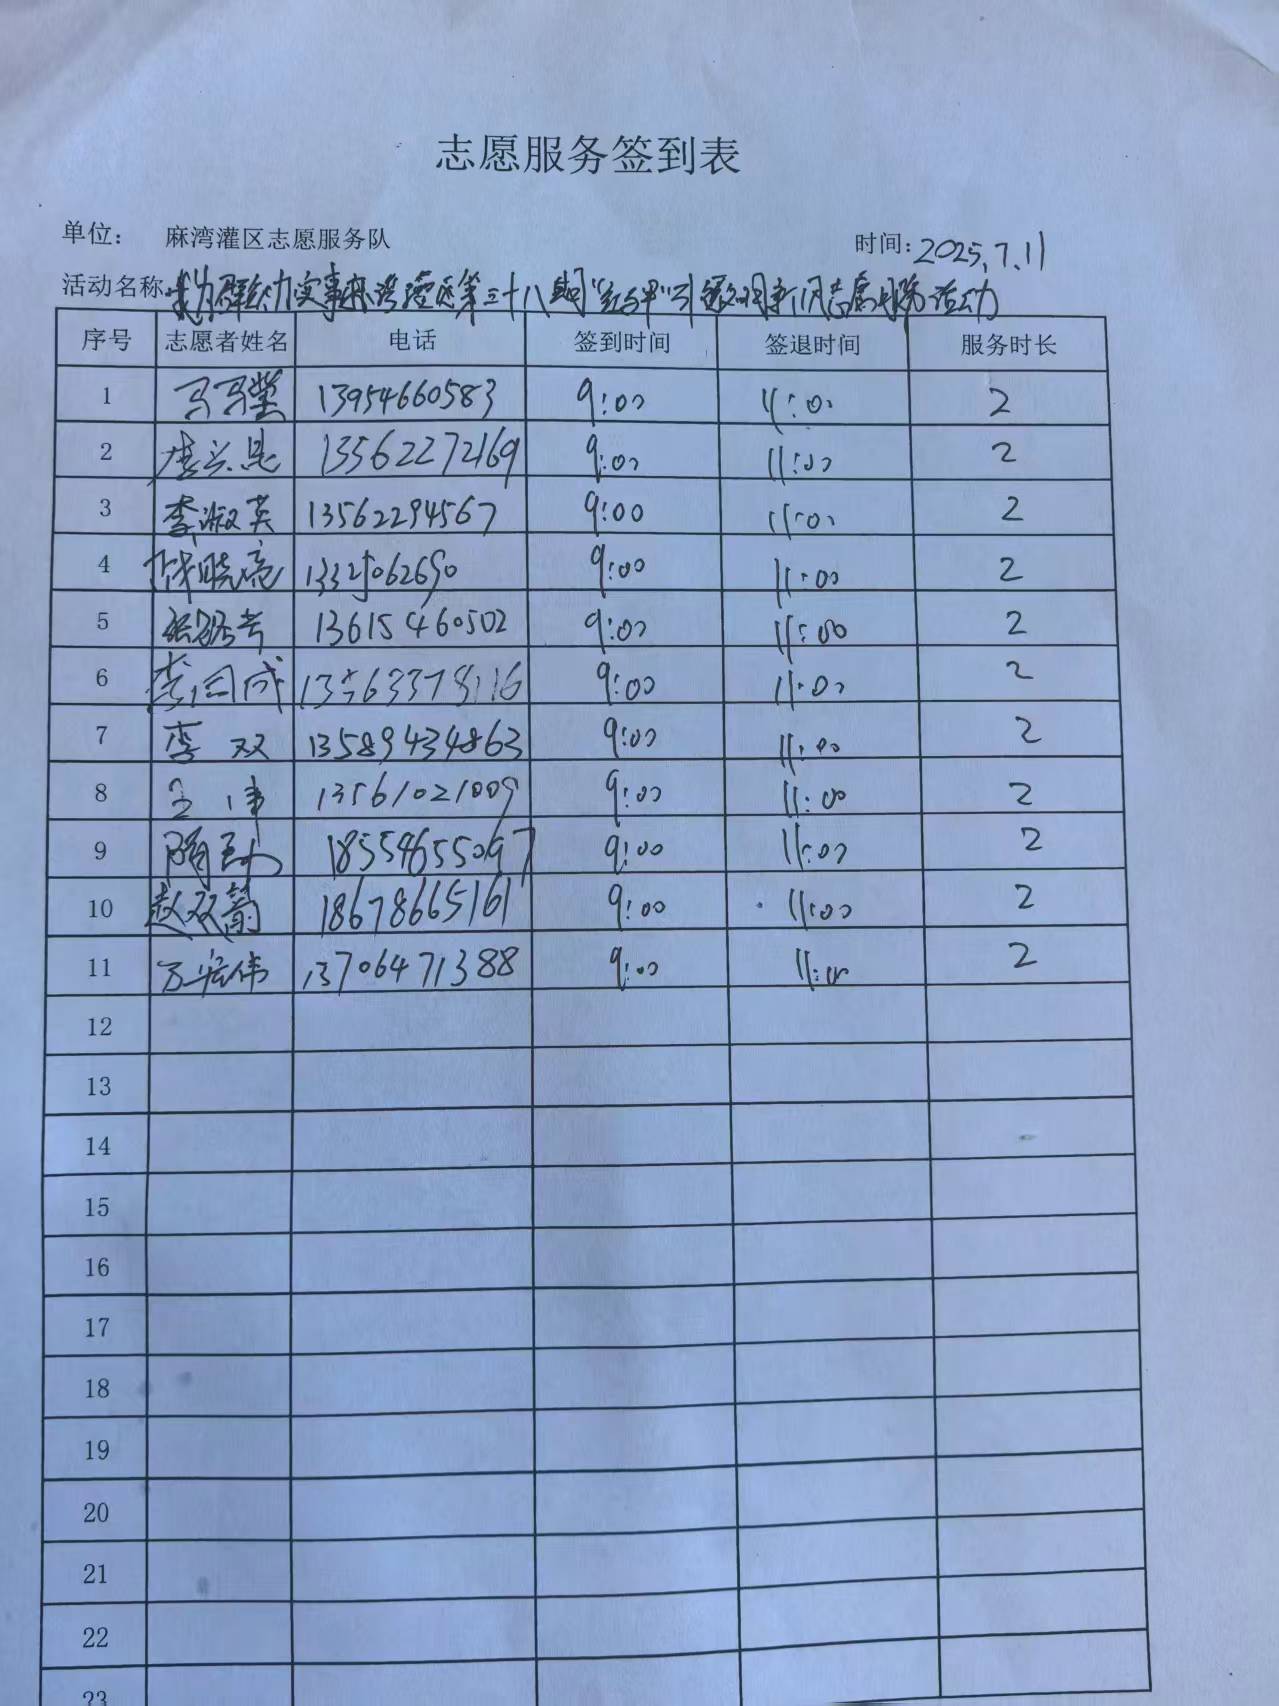 志愿服务签到表
单位： 麻湾灌区志愿服务队 时间：2025.7.11
活动名称 我为群众办实事麻湾灌区第三十八期"红马甲"引 文明新风志愿服务活动
序号 志愿者姓名 电话 签到时间 签退时间 服务时长
1 13954660583 9:00 11:00 2
2 13562272169 9:00 11:00 2
3 李淑英 13562294567 9:00 11:00 2
4 晓亮 9:00 11:00 2
5 13615460502 9:00 11:00 2
6 9:00 11:00 2
7 李双 13589434863 9:00 11:00 2
8 王伟 13561021009 9:00 11:00 2
9 18554655097 9:00 11:00 2
10 赵双菊 18678665161 9:00 11:00 2
11 万宏伟 13706471388 9:00 11:00 2
12
13
14
15
16
17
18
19
20
21
22
23